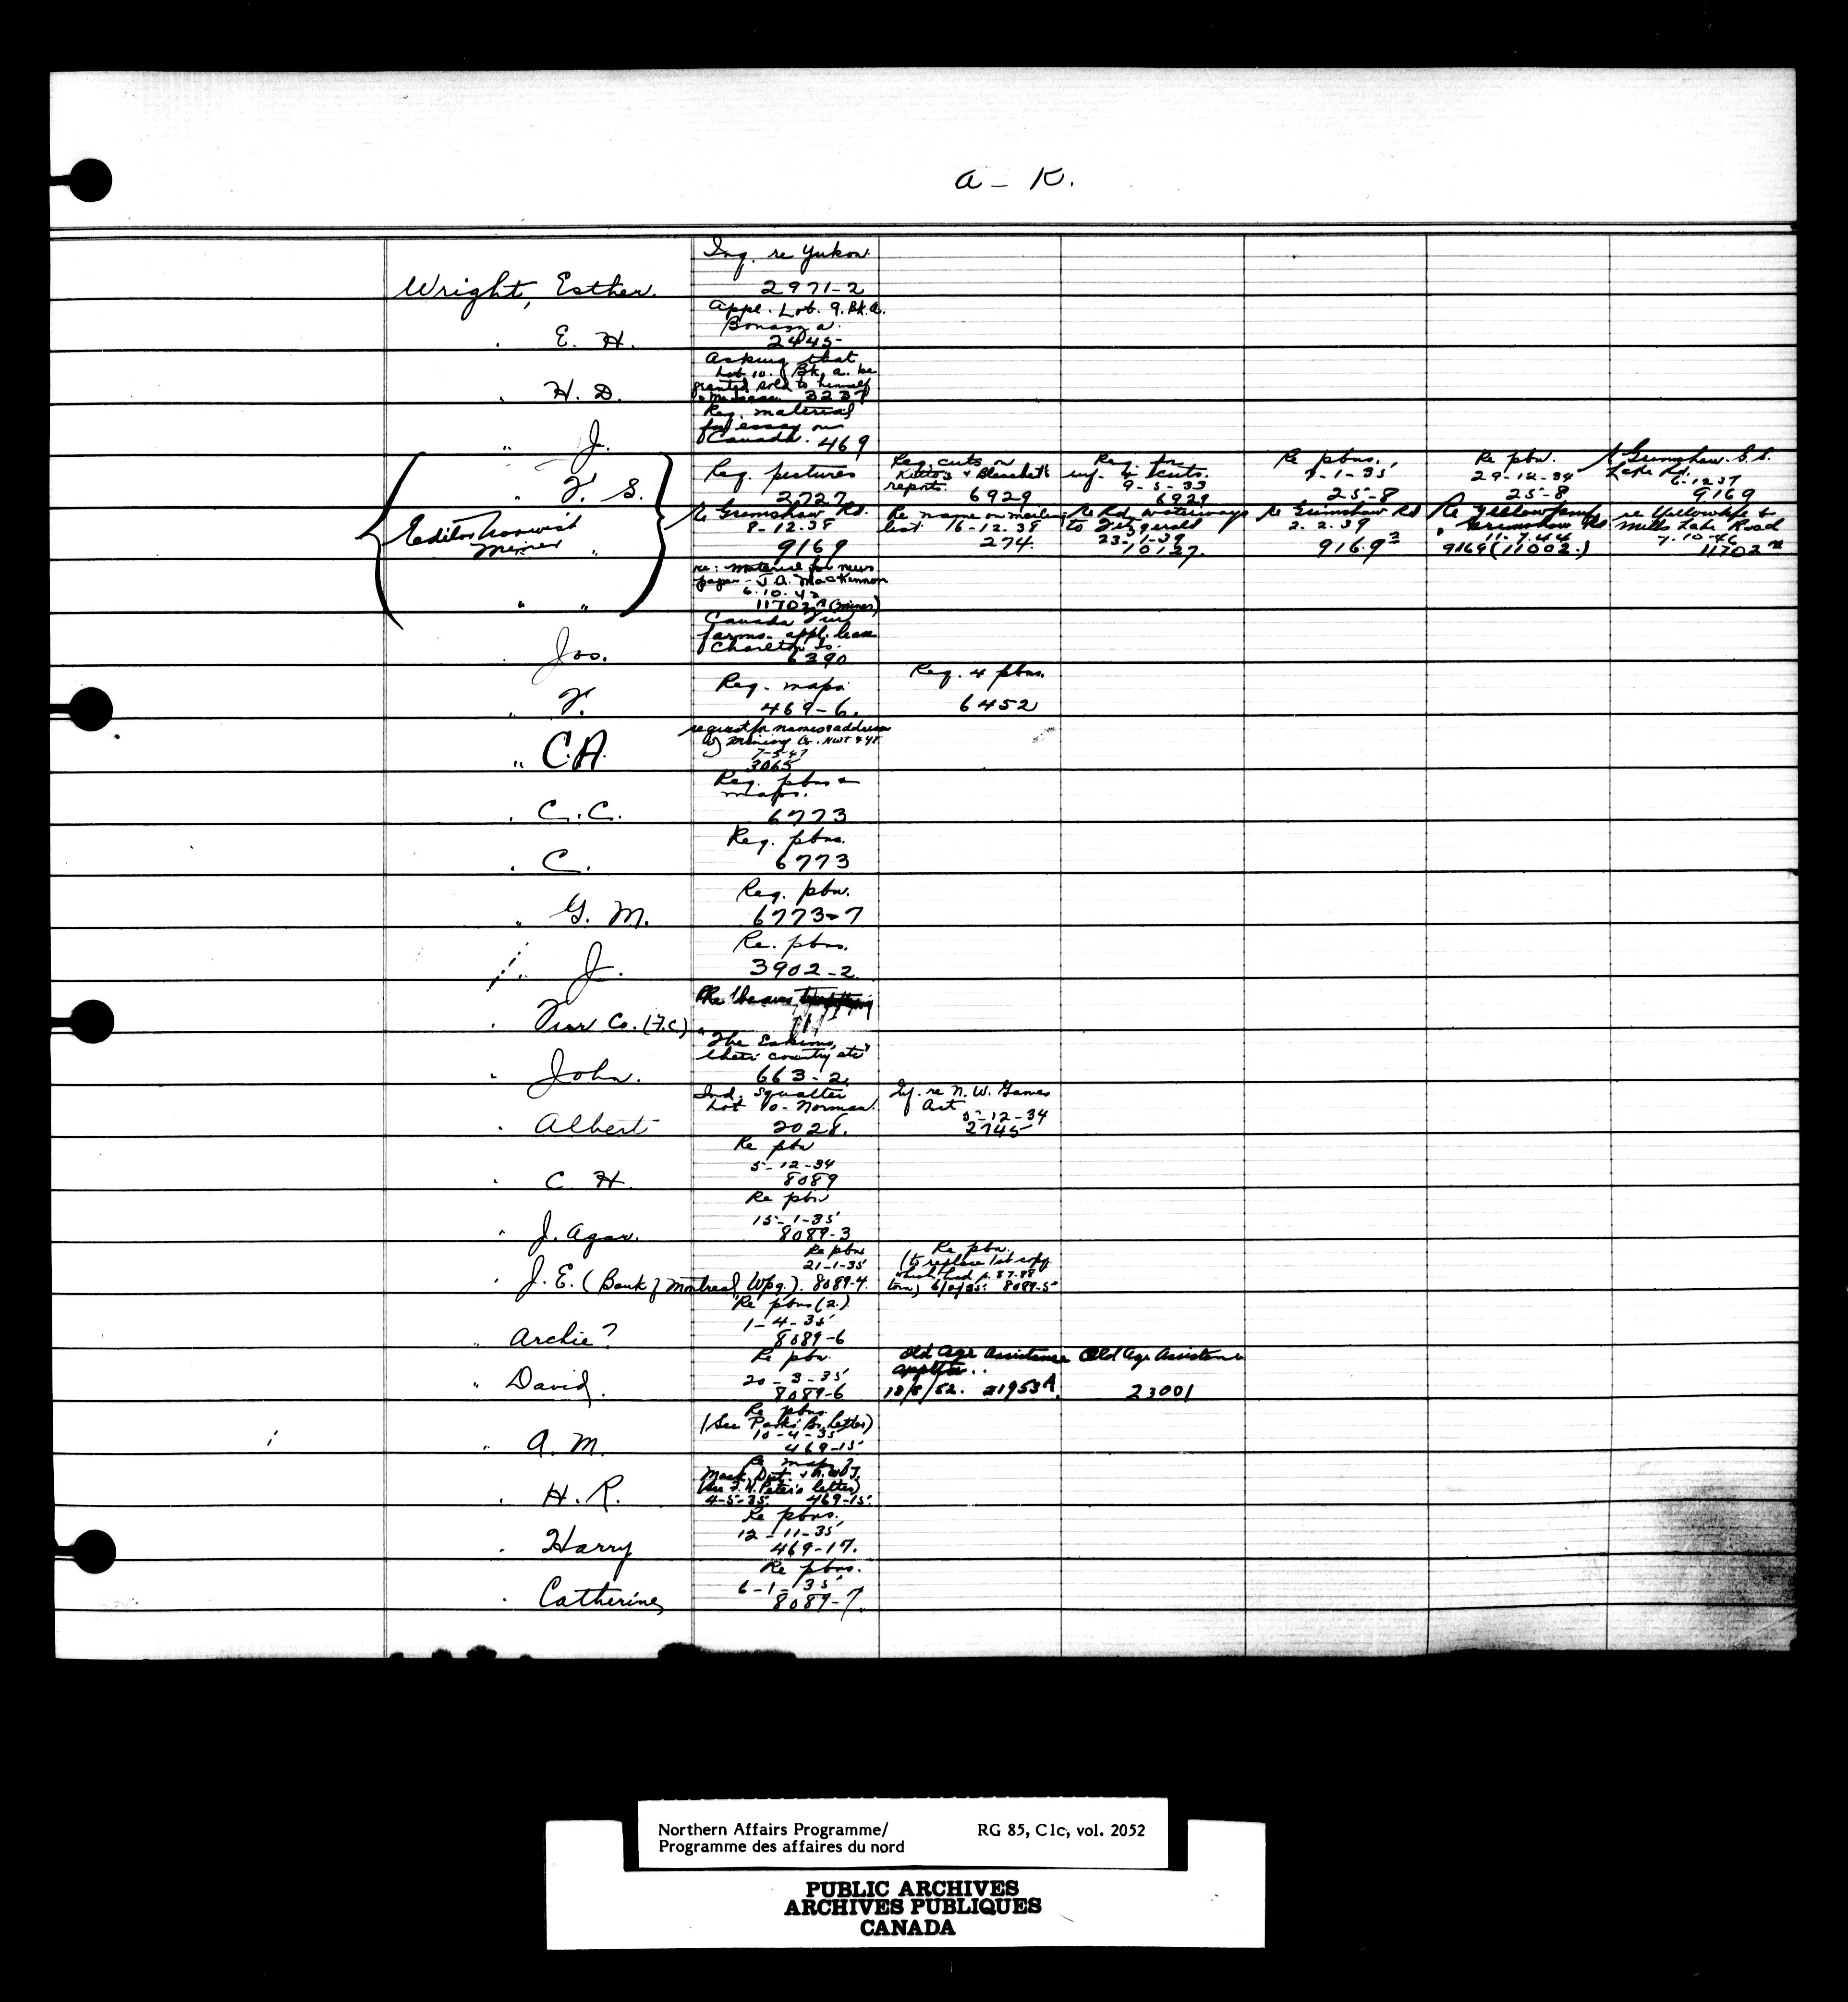 A - K.
Inq. re Yukon
Wright, Esther. 2971-2
Appl. Lot. 9. Bk. A.
Bonanza
" E. H. 2445-
Asking that
Lot 10. Bk. A. be
granted sold to himself
" H. D. 3237
Req. material
for essay on
" J. Canada. 469
Req. pictures
2727
Req. cuts on
Kitto's & Blanchet's
reports. 6929
Req. for
9-5-33
6929
Re pbns.
9-1-35
25-8
Re pbn.
29-12-34
25-8
Re Grimshaw-G.S.
Lake Rd.
6-12-37
9169
" F. S.
Editor Norwest
Miner "
Re Grimshaw Rd.
8-12-38
9169
Re name on mailing
list. 16-12-38
274.
Re Rd. Waterways
to Fitzgerald
23-1-39
10127.
Re Grimshaw Rd
2. 2. 39
9169
Re Yellowknife
Grimshaw Rd
11-7.44
9169 (11002.)
re Yellowknife to
Mills Lake Road
7.10-46
11702
re: Material for news
paper - J. A. MacKinnon
6.10.42
" " 11702 (Miner)
Canada Fur
farms - appl. lease
Charlton Is.
Jos. 6390
Req. maps
" F. 469-6.
Req. 4 pbns.
6452
request for names & address
of Mining Co. NWT & YT.
7-5-47
" C.A. 3065
Req. pbns &
maps.
" C. C. 6773
Req. pbns.
" C. 6773
Req. pbn.
" G. M. 6773-7
Re. pbns.
" J. 3902-2
" Fur Co. (F.C)
"The Eskimo,
their country etc"
" John. 663-2
Ind. Squatter
Lot 10 - Norman.
" Albert 2028.
Inf. re N. W. Game
Act
5-12-34
2745
Re pbn
5-12-34
" C. H. 8089
Re pbn
15-1-35
" J. Agar. 8089-3
Re pbns
21-1-35
" J. E. (Bank of Montreal Wpg.). 8089-4.
Re pbn.
(to replace 1st copy
which had p. 87-88
torn) 6/2/35. 8089-5
Re pbns (2.)
1-4-35
" Archie? 8089-6
Re pbn.
20-3-35
" David. 8089-6
Old Age Assistance
18/8/52. 21953A
Old Age Assistance
23001
Re pbns
(See Parks Br. letter)
10-4-35
" A. M. 469-15
Re maps
Mack. Dist. & N.W.T.
(See F. H. Peter's letter)
" H. R. 4-5-35. 469-15.
Re pbns.
12-11-35
" Harry 469-17.
Re pbns.
6-1-35
" Catherine 8089-7.
Northern Affairs Programme/ RG 85, C1c, vol. 2052
Programme des affaires du nord
PUBLIC ARCHIVES
ARCHIVES PUBLIQUES
CANADA